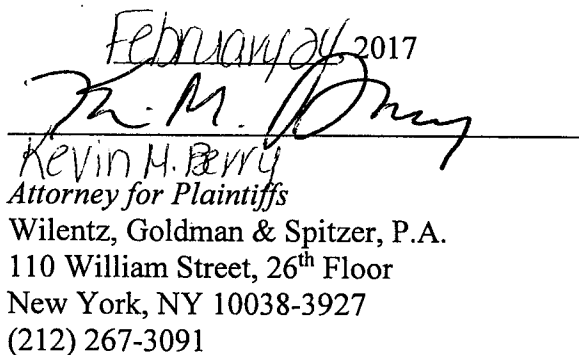 February 24, 2017
K. M. Berry
Kevin M. Berry
Attorney for Plaintiffs
Wilentz, Goldman & Spitzer, P.A.
110 William Street, 26th Floor
New York, NY 10038-3927
(212) 267-3091